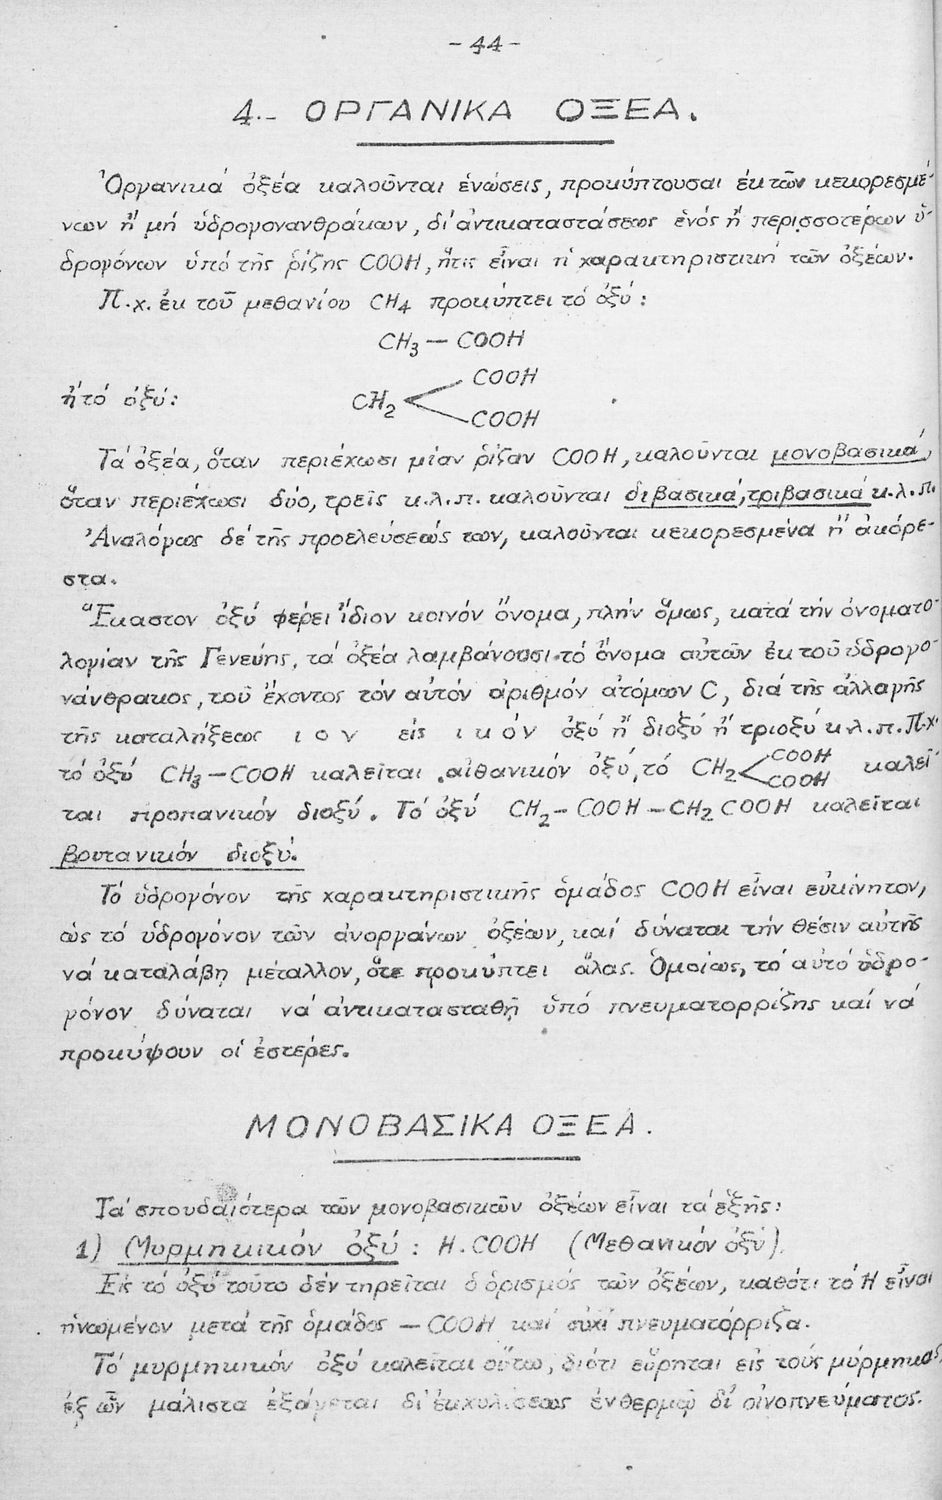 - 44 -
4.- ΟΡΓΑΝΙΚΑ ΟΞΕΑ.
Ὀργανικά ὀξέα καλοῦνται ἑνώσεις, προκύπτουσαι ἐκ τῶν κεκορεσμέ-
νων ἤ μή ὑδρογονανθράκων, δι' ἀντικαταστάσεως ἑνός ἤ περισσοτέρων ὑ-
δρογόνων ὑπό τῆς ρίζης COOH, ἥτις εἶναι ἡ χαρακτηριστική τῶν ὀξέων.
Π.χ. ἐκ τοῦ μεθανίου CH4 προκύπτει τό ὀξύ :
CH3 — COOH
COOH
ἤ τό ὀξύ: CH2
COOH
Τά ὀξέα, ὅταν περιέχωσι μίαν ρίζαν COOH, καλοῦνται μονοβασικά,
ὅταν περιέχωσι δύο, τρεῖς κ.λ.π. καλοῦνται διβασικά, τριβασικά κ.λ.π.
Ἀναλόγως δέ τῆς προελεύσεώς των, καλοῦνται κεκορεσμένα ἤ ἀκόρε-
στα.
Ἕκαστον ὀξύ φέρει ἴδιον κοινόν ὄνομα, πλήν ὅμως, κατά τήν ὀνοματο-
λογίαν τῆς Γενεύης, τά ὀξέα λαμβάνουσι τό ὄνομα αὐτῶν ἐκ τοῦ ὑδρογο-
νάνθρακος, τοῦ ἔχοντος τόν αὐτόν ἀριθμόν ἀτόμων C, διά τῆς ἀλλαγῆς
τῆς καταλήξεως ι ο ν εἰς ι κ ό ν ὀξύ ἤ διοξύ ἤ τριοξύ κ.λ.π. Π.χ.
τό ὀξύ CH3 — COOH καλεῖται αἰθανικόν ὀξύ, τό CH2 COOH COOH καλεῖ-
ται προπανικόν διοξύ. Τό ὀξύ CH2 - COOH - CH2 COOH καλεῖται
βουτανικόν διοξύ.
Τό ὑδρογόνον τῆς χαρακτηριστικῆς ὁμάδος COOH εἶναι εὐκίνητον,
ὡς τό ὑδρογόνον τῶν ἀνοργάνων ὀξέων, καί δύναται τήν θέσιν αὐτῆς
νά καταλάβῃ μέταλλον, ὅτε προκύπτει ἅλας. Ὁμοίως, τό αὐτό ὑδρο-
γόνον δύναται νά ἀντικατασταθῇ ὑπό πνευματορρίζης καί νά
προκύψουν οἱ ἐστέρες.
ΜΟΝΟΒΑΣΙΚΑ ΟΞΕΑ.
Τά σπουδαιότερα τῶν μονοβασικῶν ὀξέων εἶναι τά ἑξῆς:
1) Μυρμηκικόν ὀξύ : H. COOH (Μεθανικόν ὀξύ).
Εἰς τό ὀξύ τοῦτο δέν τηρεῖται ὁ ὁρισμός τῶν ὀξέων, καθότι τό H εἶναι
ἡνωμένον μετά τῆς ὁμάδος — COOH καί οὐχί πνευματόρριζα.
Τό μυρμηκικόν ὀξύ καλεῖται οὕτω, διότι εὕρηται εἰς τούς μύρμηκας,
ἐξ ὧν μάλιστα ἐξάγεται δι' ἐκχυλίσεως ἐν θερμῷ δι' οἰνοπνεύματος.